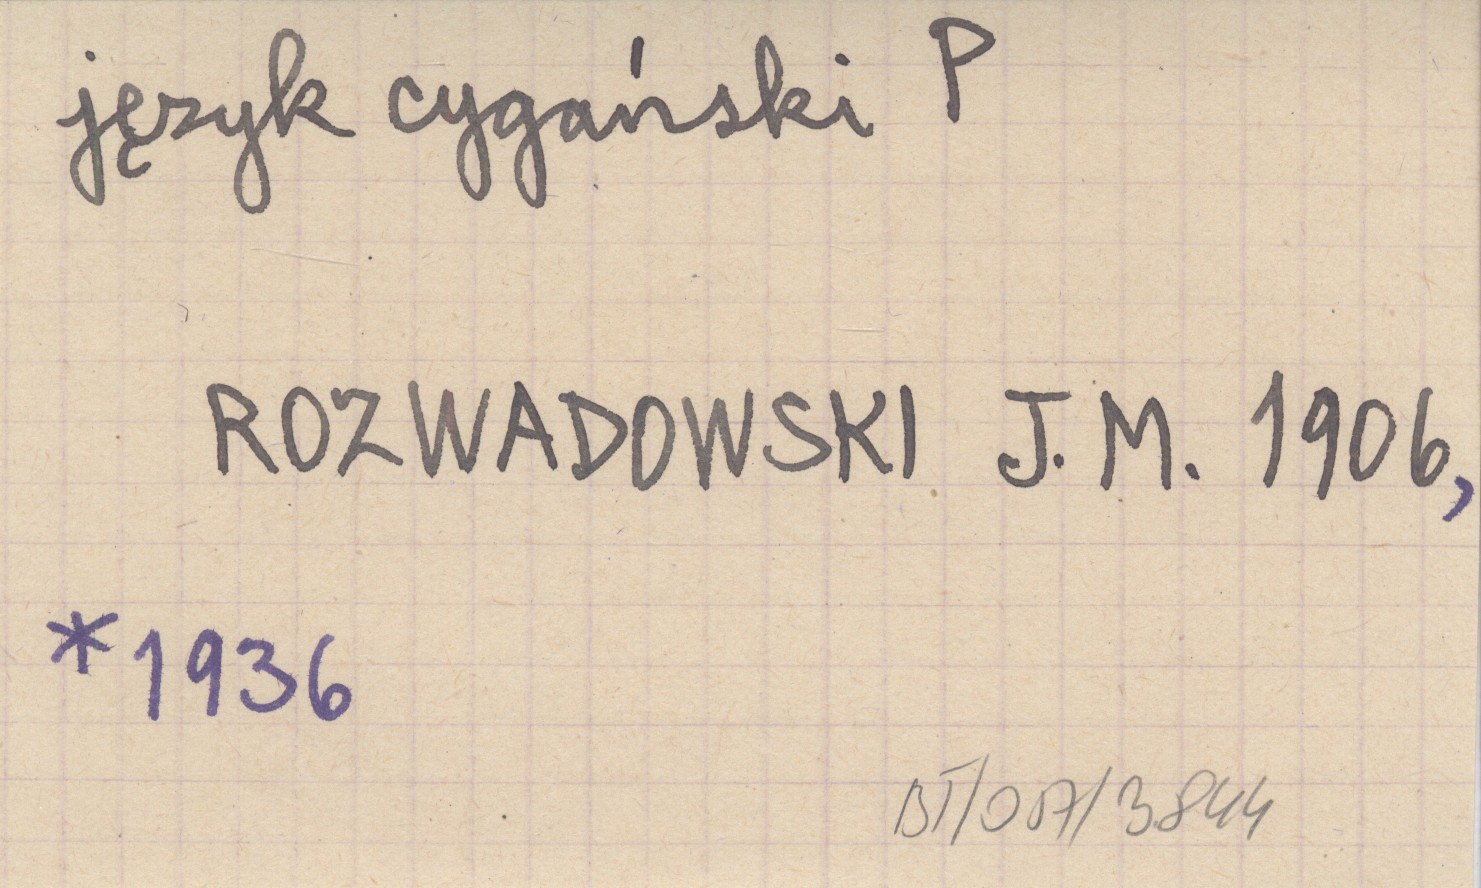 język cygański P
ROZWADOWSKI J.M. 1906,
*1936
BT/007/3844